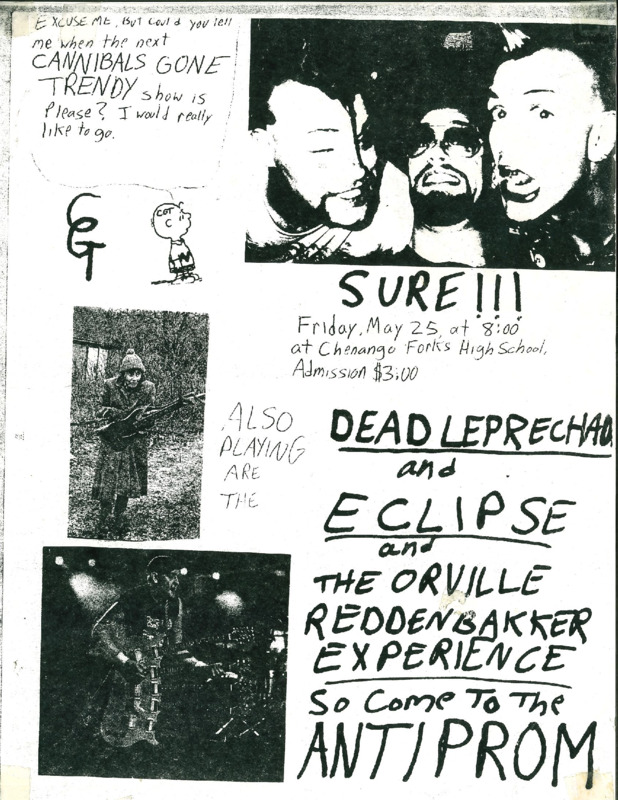 EXCUSE ME, BUT Could you tell
me when the next
CANNIBALS GONE
TRENDY show is
Please? I would really
like to go.
CGT
SURE!!!
Friday, May 25, at 8:00
at Chenango Forks High School,
Admission $3.00
ALSO
PLAYING
ARE
THE
DEAD LEPRECHAU
and
ECLIPSE
and
THE ORVILLE
REDDENBAKKER
EXPERIENCE
So Come To The
ANTIPROM